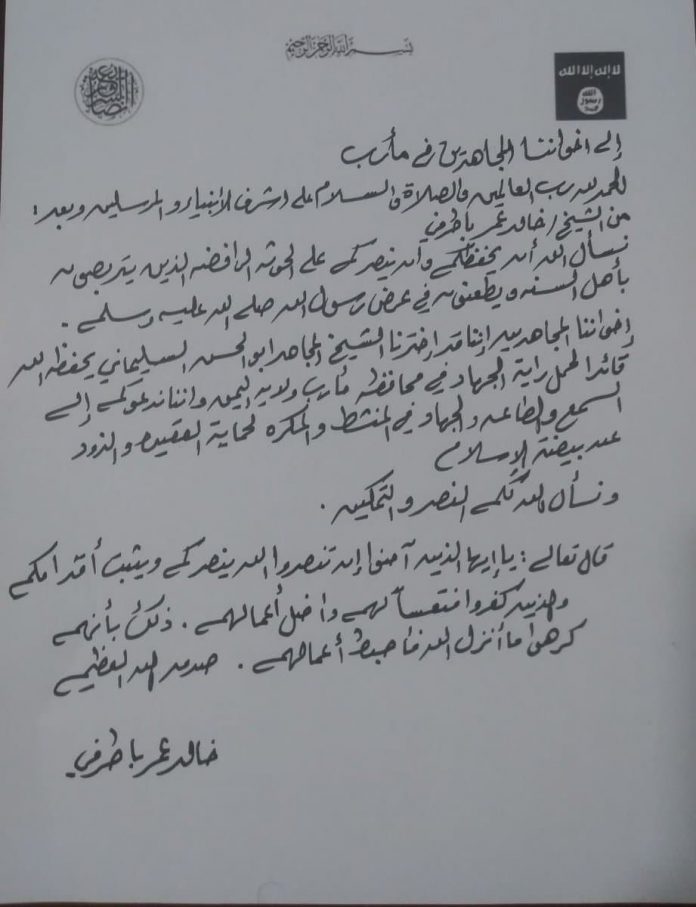 بسم الله الرحمن الرحيم
لا إله إلا الله
الله
رسول
محمد
أنصار الشريعة
إلى اخواننا المجاهدين في مأرب
الحمد لله رب العالمين والصلاة والسلام على اشرف الأنبياء والمرسلين وبعد :
من الشيخ / خالد عمر باطرفي
نسأل الله أن يحفظكم وأن ينصركم على الحوثه الرافضه الذين يتربصون
بأهل السنه ويطعنون في عرض رسول الله صلى الله عليه وسلم .
إخواننا المجاهدين إننا قد إخترنا الشيخ المجاهد ابو الحسن السليماني يحفظه الله
قائدا لحمل راية الجهاد في محافظه مأرب ولايه اليمن واننا ندعوكم إلى
السمع والطاعه والجهاد في المنشط والمكره لحماية العقيده والذود
عن بيضة الإسلام
ونسأل الله لكم النصر والتمكين .
قال تعالى : يا إيها الذين آمنوا إن تنصروا الله ينصركم ويثبت أقدامكم
والذين كفروا فتعساً لهم واضل أعمالهم . ذلك بأنهم
كرهوا ما أنزل الله فأحبط أعمالهم . صدق الله العظيم
خالد عمر باطرفي